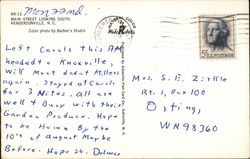 Monrand
KH-13
MAIN STREET LOOKING SOUTH
HENDERSONVILLE, N.C.
Color photo by Barber's Studio
Left Carols this AM
headed to Knoxville,
Will meet dad at Millers
again. Stayed at Chris's
for 3 Nites. All are
well & Busy with their
Garden Produce. Hope
to be Home By the
10th of August Maybe
Before. Hope St. Delmar
5¢ U.S. POSTAGE
Mrs. S. E. Zirkle
Rt. 1, Box 100
Orting,
WN 98360